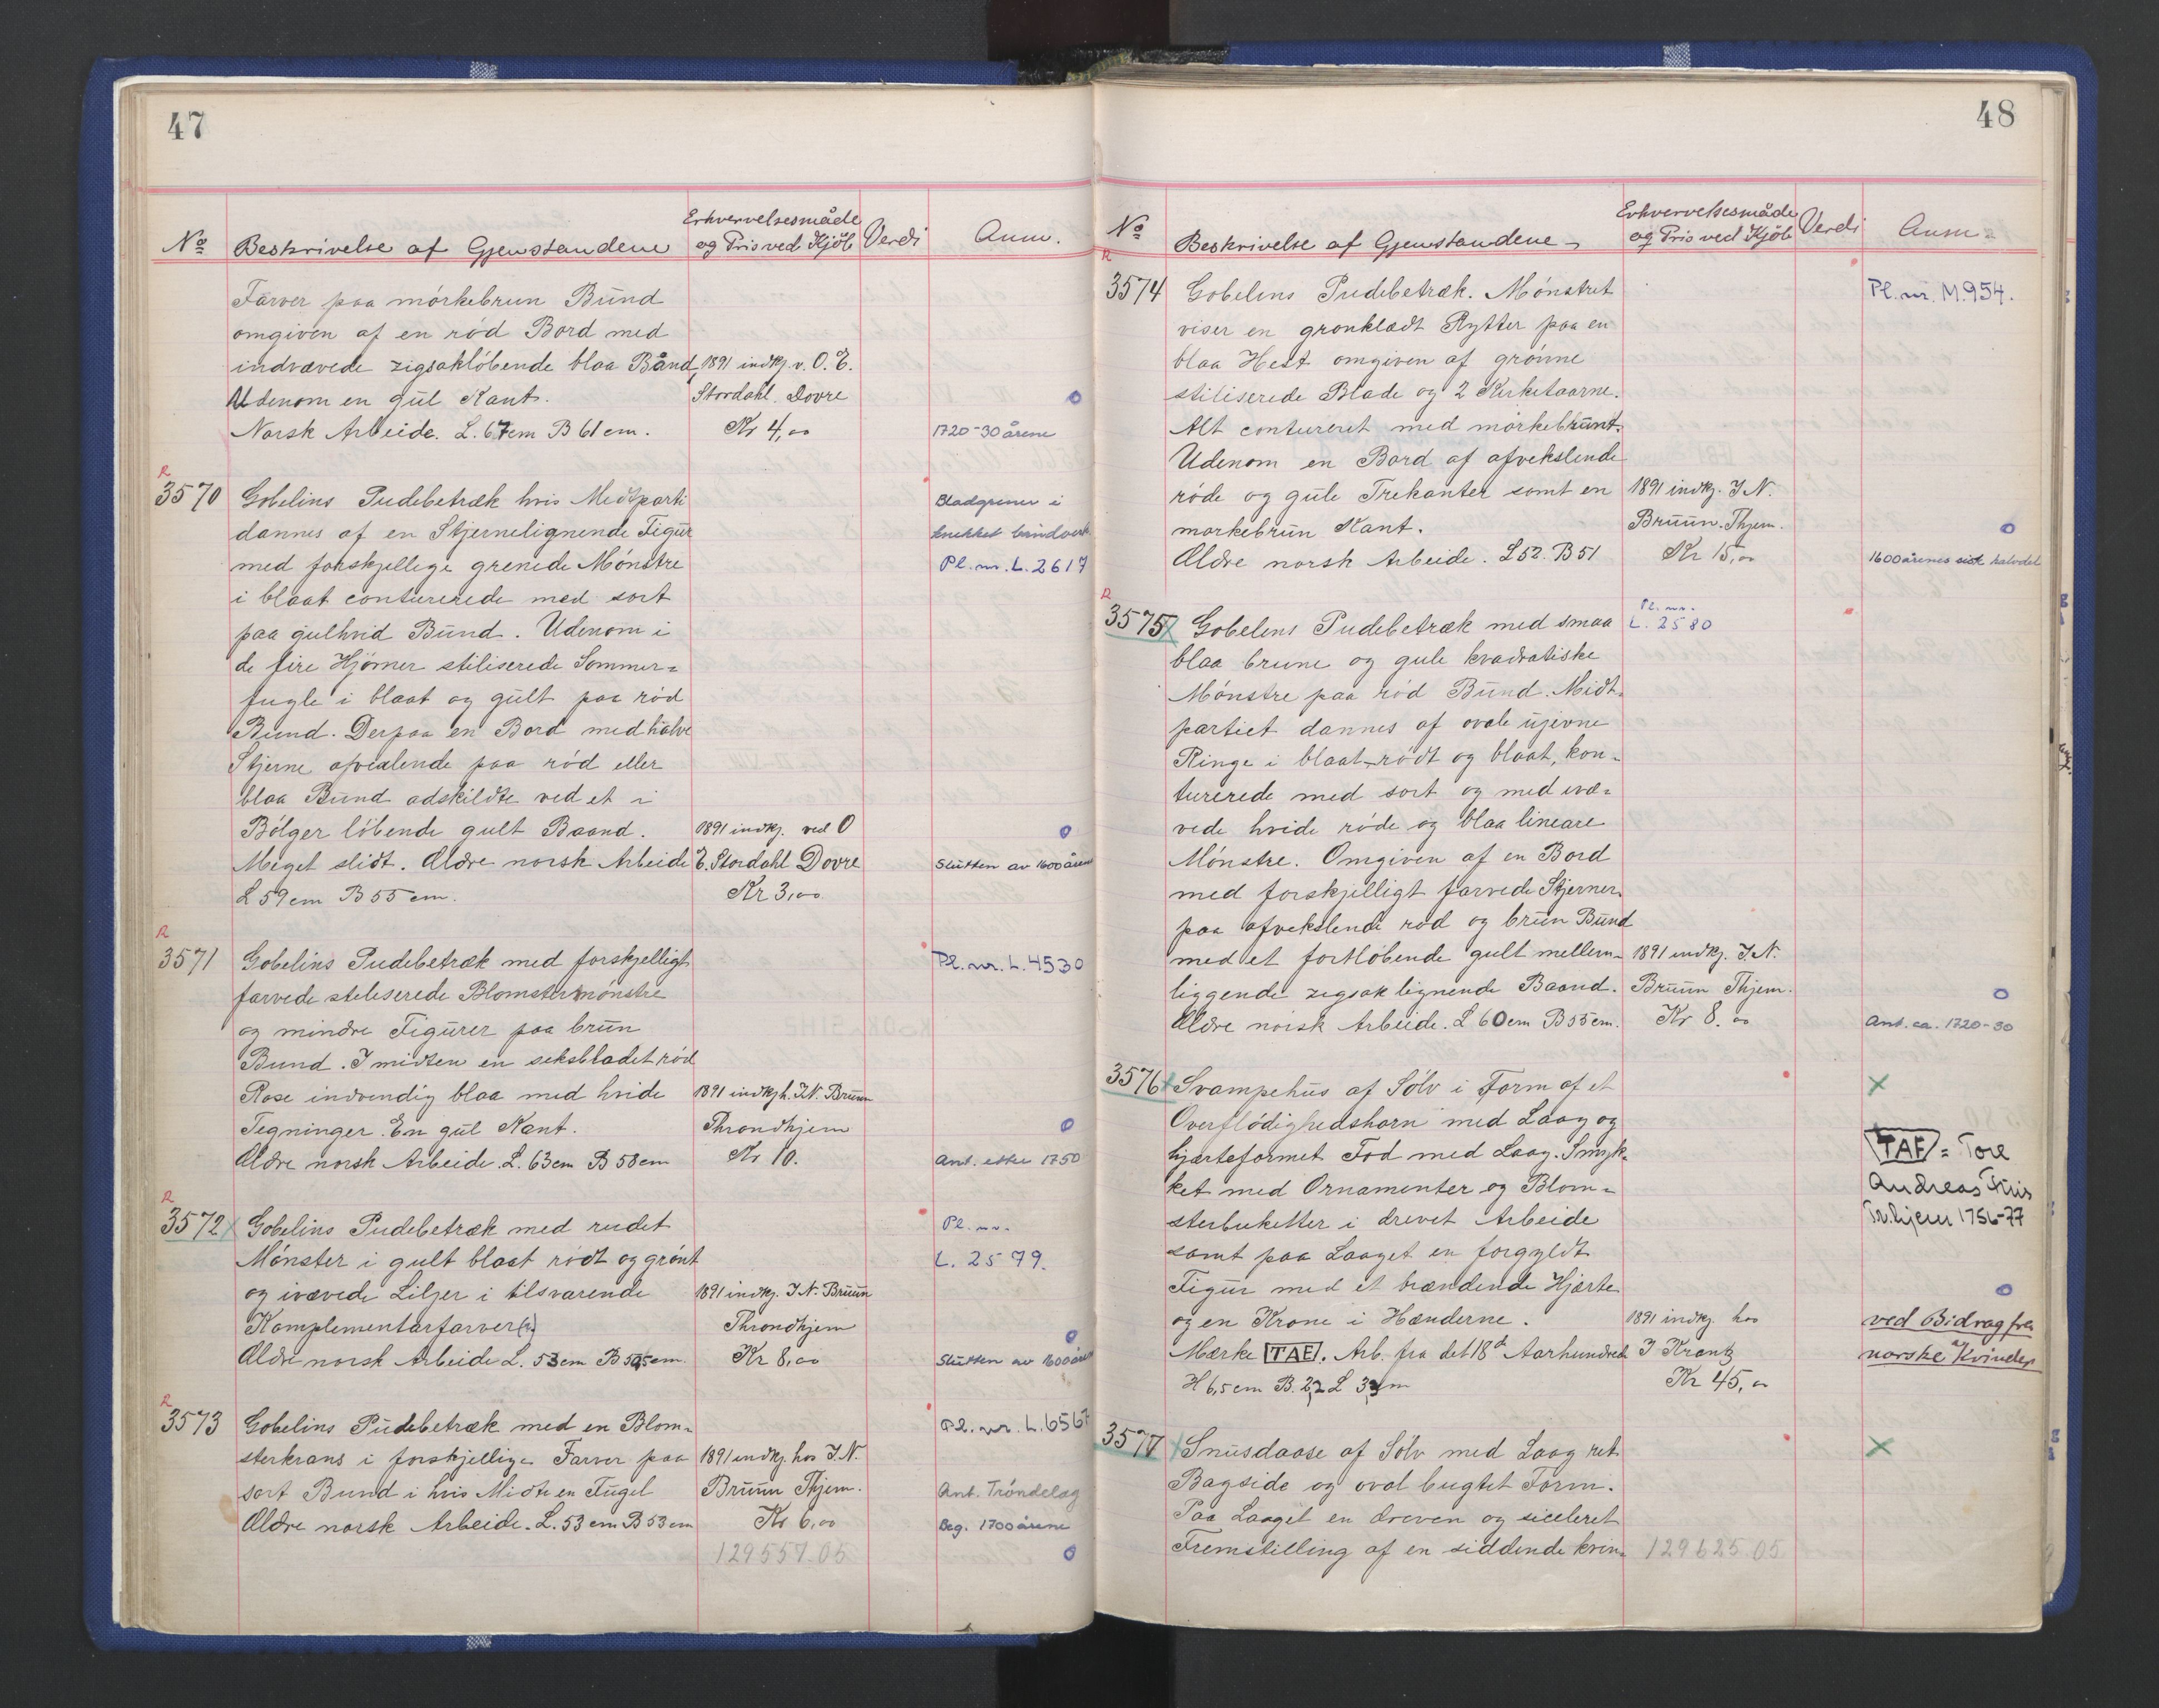 47
No Beskrivelse af Gjenstandene Erhvervelsesmåde og Pris ved Kjöb Verdi Anm.
Farver paa mörkebrun Bund
omgiven af en röd Bord med
indvævede zigsaklöbende blaa Bånd, 1891 indkj. v. O. E.
Udenom en gul Kant. Stordahl. Dovre
Norsk Arbeide. L. 67cm B 61 cm. Kr 4,00 1720-30 årene
R
3570 Gobelins Pudebetræk hvis Midtparti Bladgrener i
dannes af en Stjernelignende Figur knekket båndverk
med forskjellige grenede Mönstre Pl. nr. L. 2617
i blaat conturerede med sort
paa gulhvid Bund. Udenom i
de fire Hjörner stiliserede Sommer=
fugle i blaat og gult paa röd
Bund. Derpaa en Bord med halve
Stjerne afvexlende paa röd eller
blaa Bund adskildte ved et i
Bölger löbende gult Baand. 1891 indkj. ved O
Meget slidt. Ældre norsk Arbeide E. Stordahl Dovre Slutten av 1600 årene
L 59 cm B 55 cm. Kr 3,00
R
3571 Gobelins Pudebetræk med forskjelligt Pl. nr. L. 4530
farvede steliserede Blomstermönstre
og mindre Figurer paa brun
Bund. I midten en seksbladet röd
Rose indvendig blaa med hvide 1891 indkj h. I.N. Bruun
Tegninger. En gul Kant. Throndhjem
Ældre norsk Arbeide. L. 63cm B 58cm Kr 10. Ant. etter 1750
R
3572 Gobelins Pudebetræk med rudet Pl. nr.
Mönster i gult blaat rödt og grönt L. 2579.
og ivævede Liljer i tilsvarende 1891 indkj. I.N. Bruun
Komplementärfarver(?) Throndhjem
Ældre norsk Arbeide L. 53cm B 50,5cm. Kr 8,00 Slutten av 1600 årene
R
3573 Gobelins Pudebetræk med en Blom= Pl. nr. L. 6567
sterkrans i forskjellige Farver paa 1891 indkj. hos I.N.
sort Bund i hvis Midte en Fugel Bruun Thjem. Ant. Tröndelag
Ældre norsk Arbeide. L. 53 cm B 53 cm Kr 6,00 Beg. 1700 årene
129557.05
48
No Beskrivelse af Gjenstandene Erhvervelsesmåde og Pris ved Kjöb Verdi Anm.
R
3574 Gobelins Pudebetræk. Mönstret Pl. nr. M. 954.
viser en grönklædt Rytter paa en
blaa Hest omgiven af grönne
stiliserede Blade og 2 Kirketaarne.
Alt contureret med mörkebrunt.
Udenom en Bord af afvekslende
röde og gule Trekanter samt en 1891 indkj. I N.
mörkebrun Kant. Bruun. Thjem.
Ældre norsk Arbeide. L 52. B 51 Kr 15,00 1600 årenes siste halvdel
R
3575 Gobelens Pudebetræk med smaa Pl. nr. L. 2580
blaa brune og gule kvadratiske
Mönstre paa röd Bund. Midt=
partiet dannes af ovale ujevne
Ringe i blaat-rödt og blaat, kon=
turerede med sort og med ivæ=
vede hvide röde og blaa lineare
Mönstre. Omgiven af en Bord
med forskjelligt farvede Stjerner
paa afvekslende röd og brun Bund
med et fortlöbende gult mellem= 1891 indkj. I.N.
liggende zigsak lignende Baand. Bruun Thjem.
Ældre norsk Arbeide. L 60cm B 55cm. Kr 8.00 Ant. ca. 1720-30
3576 Svampehus af Sölv i Form af et
Overflödighedshorn med Laag og
hjærteformet Fod med Laag. Smyk= TAF = Tore
ket med Ornamenter og Blom= Andreas Friis
sterbuketter i drevet Arbeide Tr.hjem 1756-77
samt paa Laaget en forgyldt
Figur med et brændende Hjærte
og en Krone i Hænderne. 1891 indkj. hos ved Bidrag fra
Mærke TAF. Arb. fra det 18de Aarhundrede I Krantz norske Kvinder
H 6,5cm B. 2,2 L 3,3cm Kr 45,00
3577 Snusdaase af Sölv med Laag ret
Bagside og oval bugtet Form.
Paa Laaget en dreven og siceleret
Fremstilling af en siddende kvin= 129625.05